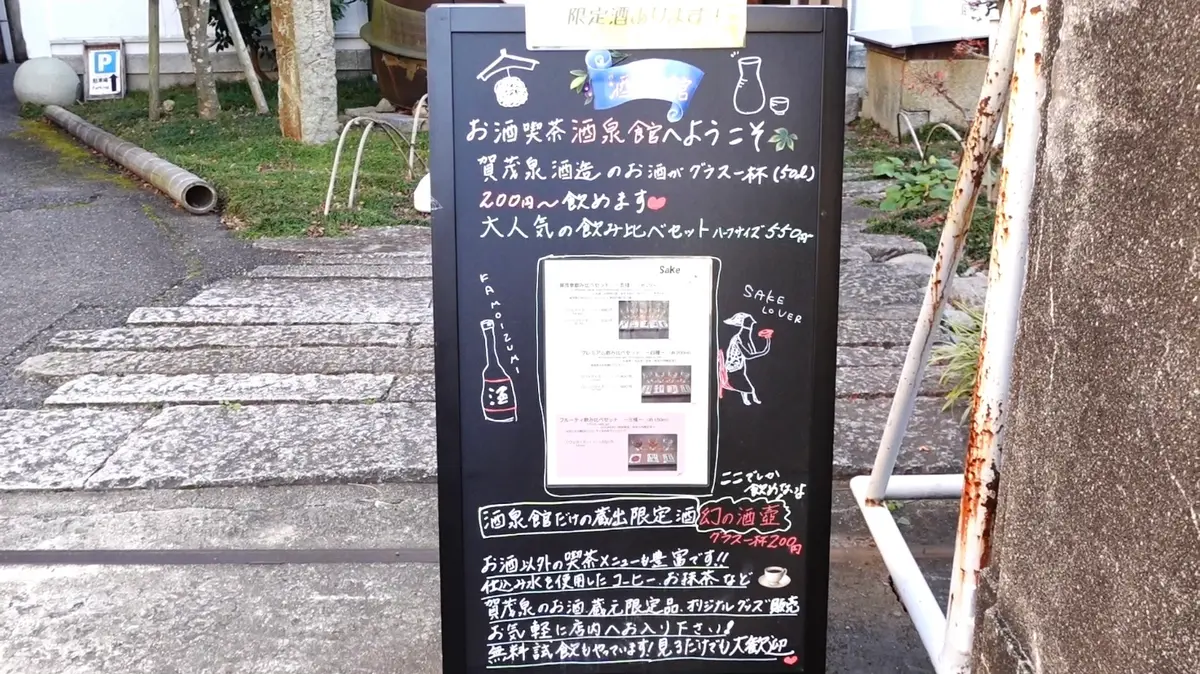 限定酒あります！
P
駐車場
Parking
お酒喫茶酒泉館へようこそ
賀茂泉酒造のお酒がグラス一杯(50ml)
200円～飲めます
大人気の飲み比べセットハーフサイズ550円
KAMOIZUMI
酒
Sake
プレミアム飲み比べセット
フルーティ飲み比べセット
SAKE
LOVER
ここでしか
飲めないよ
酒泉館だけの蔵出限定酒
幻の酒壺
グラス一杯200円
お酒以外の喫茶メニューも豊富です!!
仕込み水を使用したコーヒー、お抹茶など
賀茂泉のお酒蔵元限定品、オリジナルグッズ販売
お気軽に店内へお入り下さい!
無料試飲もやっています!見るだけでも大歓迎